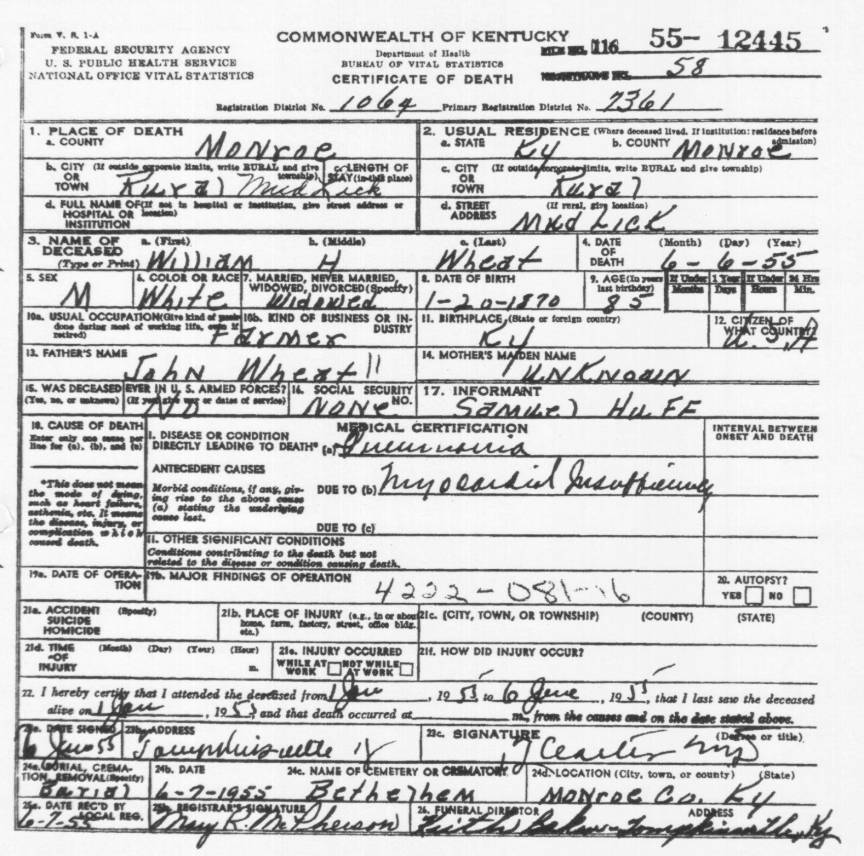 Form V. S. 1-A
FEDERAL SECURITY AGENCY
U. S. PUBLIC HEALTH SERVICE
NATIONAL OFFICE VITAL STATISTICS
COMMONWEALTH OF KENTUCKY
Department of Health
BUREAU OF VITAL STATISTICS
CERTIFICATE OF DEATH
FILE NO. 116 55-12445
58
Registration District No. 1064 Primary Registration District No. 7361
1. PLACE OF DEATH
a. COUNTY Monroe
2. USUAL RESIDENCE (Where deceased lived. If institution: residence before admission)
a. STATE Ky b. COUNTY Monroe
b. CITY (If outside corporate limits, write RURAL and give township)
OR TOWN Rural Mud Lick
c. LENGTH OF STAY (in this place)
c. CITY (If outside corporate limits, write RURAL and give township)
OR TOWN Rural
d. FULL NAME OF (If not in hospital or institution, give street address or location)
HOSPITAL OR INSTITUTION
d. STREET ADDRESS (If rural, give location)
Mud Lick
3. NAME OF DECEASED (Type or Print)
a. (First) b. (Middle) c. (Last)
William H Wheat
4. DATE OF DEATH (Month) (Day) (Year)
6-6-55
5. SEX
M
6. COLOR OR RACE
White
7. MARRIED, NEVER MARRIED, WIDOWED, DIVORCED (Specify)
Widowed
8. DATE OF BIRTH
1-20-1870
9. AGE (In years last birthday)
85
If Under 1 Year Months Days
If Under 24 Hrs Hours Min.
10a. USUAL OCCUPATION (Give kind of work done during most of working life, even if retired)
Farmer
10b. KIND OF BUSINESS OR INDUSTRY
11. BIRTHPLACE (State or foreign country)
Ky
12. CITIZEN OF WHAT COUNTRY?
U.S.A
13. FATHER'S NAME
John Wheat
14. MOTHER'S MAIDEN NAME
UNKNOWN
15. WAS DECEASED EVER IN U. S. ARMED FORCES?
(Yes, no, or unknown) (If yes, give war or dates of service)
NO
16. SOCIAL SECURITY NO.
NONE
17. INFORMANT
Samuel Huff
18. CAUSE OF DEATH
Enter only one cause per line for (a), (b), and (c)
*This does not mean the mode of dying, such as heart failure, asthenia, etc. It means the disease, injury, or complication which caused death.
MEDICAL CERTIFICATION
INTERVAL BETWEEN ONSET AND DEATH
I. DISEASE OR CONDITION DIRECTLY LEADING TO DEATH* (a) Pneumonia
ANTECEDENT CAUSES
Morbid conditions, if any, giving rise to the above cause (a) stating the underlying cause last.
DUE TO (b) Myocardial Insufficiency
DUE TO (c)
II. OTHER SIGNIFICANT CONDITIONS
Conditions contributing to the death but not related to the disease or condition causing death.
19a. DATE OF OPERATION
19b. MAJOR FINDINGS OF OPERATION
4222-081-16
20. AUTOPSY?
YES NO
21a. ACCIDENT SUICIDE HOMICIDE (Specify)
21b. PLACE OF INJURY (e.g., in or about home, farm, factory, street, office bldg. etc.)
21c. (CITY, TOWN, OR TOWNSHIP) (COUNTY) (STATE)
21d. TIME OF INJURY (Month) (Day) (Year) (Hour) m.
21e. INJURY OCCURRED
WHILE AT WORK NOT WHILE AT WORK
21f. HOW DID INJURY OCCUR?
22. I hereby certify that I attended the deceased from 1 Jan, 1955 to 6 June, 1955, that I last saw the deceased
alive on 1 Jan, 1955, and that death occurred at m., from the causes and on the date stated above.
23a. DATE SIGNED
6 Jun 55
23b. ADDRESS
Tompkinsville Ky
23c. SIGNATURE (Degree or title)
Carter MD
24a. BURIAL, CREMATION, REMOVAL (Specify)
Burial
24b. DATE
6-7-1955
24c. NAME OF CEMETERY OR CREMATORY
Bethelhem
24d. LOCATION (City, town, or county) (State)
Monroe Co. Ky
25a. DATE REC'D BY LOCAL REG.
6-7-55
25b. REGISTRAR'S SIGNATURE
May R. McPherson
26. FUNERAL DIRECTOR ADDRESS
Keith Tompkinsville, Ky